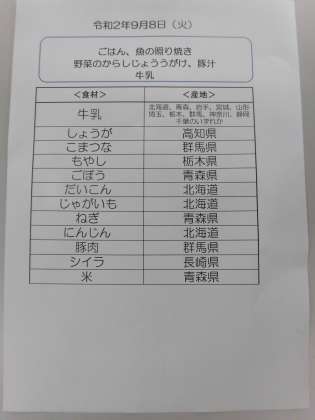 令和2年9月8日（火）
ごはん、魚の照り焼き
野菜のからしじょううがけ、豚汁
牛乳
＜食材＞ ＜産地＞
牛乳 北海道、青森、岩手、宮城、山形
埼玉、栃木、群馬、神奈川、静岡
千葉のいずれか
しょうが 高知県
こまつな 群馬県
もやし 栃木県
ごぼう 青森県
だいこん 北海道
じゃがいも 北海道
ねぎ 青森県
にんじん 北海道
豚肉 群馬県
シイラ 長崎県
米 青森県